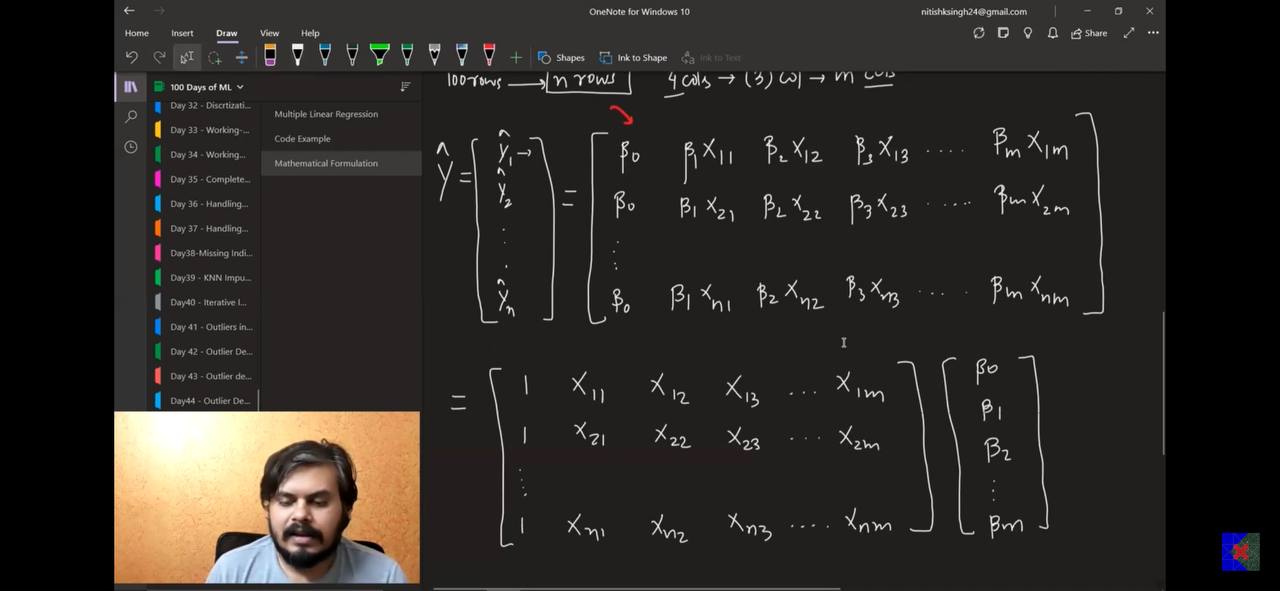 OneNote for Windows 10
nitishksingh24@gmail.com
Home Insert Draw View Help
Share
Shapes Ink to Shape Ink to Text
100 Days of ML
Day 32 - Discrtizati...
Day 33 - Working-...
Day 34 - Working...
Day 35 - Complete...
Day 36 - Handling...
Day 37 - Handling...
Day38-Missing Indi...
Day39 - KNN Impu...
Day40 - Iterative I...
Day 41 - Outliers in...
Day 42 - Outlier De...
Day 43 - Outlier de...
Day44 - Outlier De...
Multiple Linear Regression
Code Example
Mathematical Formulation
100 rows → n rows 4 cols → (3) col → m cols
Ŷ = [ ŷ₁ → = [ β₀ β₁ X₁₁ β₂ X₁₂ β₃ X₁₃ .... βₘ X₁ₘ ]
ŷ₂ β₀ β₁ X₂₁ β₂ X₂₂ β₃ X₂₃ ..... βₘ X₂ₘ
: :
ŷₙ β₀ β₁ Xₙ₁ β₂ Xₙ₂ β₃ Xₙ₃ .... βₘ Xₙₘ
= [ 1 X₁₁ X₁₂ X₁₃ ... X₁ₘ ] [ β₀
1 X₂₁ X₂₂ X₂₃ ... X₂ₘ β₁
: β₂
: :
1 Xₙ₁ Xₙ₂ Xₙ₃ .... Xₙₘ βₘ ]